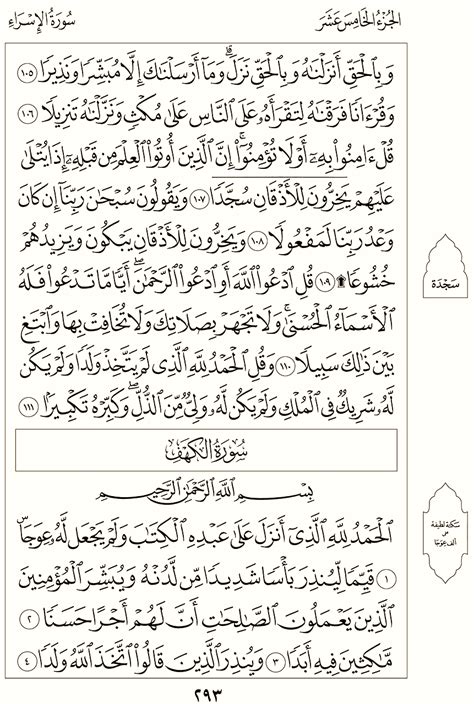 الجزء الخامس عشر
سورة الإسراء
وَبِٱلْحَقِّ أَنزَلْنَٰهُ وَبِٱلْحَقِّ نَزَلَ ۗ وَمَآ أَرْسَلْنَٰكَ إِلَّا مُبَشِّرًا وَنَذِيرًا ١٠٥
وَقُرْءَانًا فَرَقْنَٰهُ لِتَقْرَأَهُۥ عَلَى ٱلنَّاسِ عَلَىٰ مُكْثٍ وَنَزَّلْنَٰهُ تَنزِيلًا ١٠٦
قُلْ ءَامِنُوا۟ بِهِۦٓ أَوْ لَا تُؤْمِنُوٓا۟ ۚ إِنَّ ٱلَّذِينَ أُوتُوا۟ ٱلْعِلْمَ مِن قَبْلِهِۦٓ إِذَا يُتْلَىٰ
عَلَيْهِمْ يَخِرُّونَ لِلْأَذْقَانِ سُجَّدًا ١٠٧ وَيَقُولُونَ سُبْحَٰنَ رَبِّنَآ إِن كَانَ
وَعْدُ رَبِّنَا لَمَفْعُولًا ١٠٨ وَيَخِرُّونَ لِلْأَذْقَانِ يَبْكُونَ وَيَزِيدُهُمْ
خُشُوعًا ۩ ١٠٩ قُلِ ٱدْعُوا۟ ٱللَّهَ أَوِ ٱدْعُوا۟ ٱلرَّحْمَٰنَ ۖ أَيًّا مَّا تَدْعُوا۟ فَلَهُ
ٱلْأَسْمَآءُ ٱلْحُسْنَىٰ ۚ وَلَا تَجْهَرْ بِصَلَاتِكَ وَلَا تُخَافِتْ بِهَا وَٱبْتَغِ
بَيْنَ ذَٰلِكَ سَبِيلًا ١١٠ وَقُلِ ٱلْحَمْدُ لِلَّهِ ٱلَّذِى لَمْ يَتَّخِذْ وَلَدًا وَلَمْ يَكُن
لَّهُۥ شَرِيكٌ فِى ٱلْمُلْكِ وَلَمْ يَكُن لَّهُۥ وَلِىٌّ مِّنَ ٱلذُّلِّ ۖ وَكَبِّرْهُ تَكْبِيرًۢا ١١١
سورة الكهف
بِسْمِ ٱللَّهِ ٱلرَّحْمَٰنِ ٱلرَّحِيمِ
ٱلْحَمْدُ لِلَّهِ ٱلَّذِىٓ أَنزَلَ عَلَىٰ عَبْدِهِ ٱلْكِتَٰبَ وَلَمْ يَجْعَل لَّهُۥ عِوَجَا ۜ
١ قَيِّمًا لِّيُنذِرَ بَأْسًا شَدِيدًا مِّن لَّدُنْهُ وَيُبَشِّرَ ٱلْمُؤْمِنِينَ
ٱلَّذِينَ يَعْمَلُونَ ٱلصَّٰلِحَٰتِ أَنَّ لَهُمْ أَجْرًا حَسَنًا ٢
مَّٰكِثِينَ فِيهِ أَبَدًا ٣ وَيُنذِرَ ٱلَّذِينَ قَالُوا۟ ٱتَّخَذَ ٱللَّهُ وَلَدًا ٤
سجدة
سكتة لطيفة
على
ألف عوجا
٢٩٣